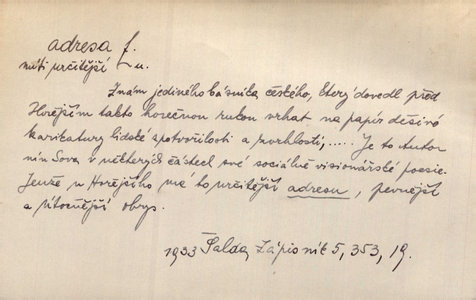 adresa f.
míti určitější ~u.
Znám jediného básníka českého, který dovedl před
Hořejším takto horečnou rukou vrhat na papír děsivé
karikatury lidské spotvořilosti a zvrhlosti, ..... Je to Anto-
nín Sova v některých částech své sociálně visionářské poesie.
Jenže u Hořejšího má to určitější adresu, pevnější
a útočnější obrys.
1933 Šalda, Zápisník 5, 353, 19.